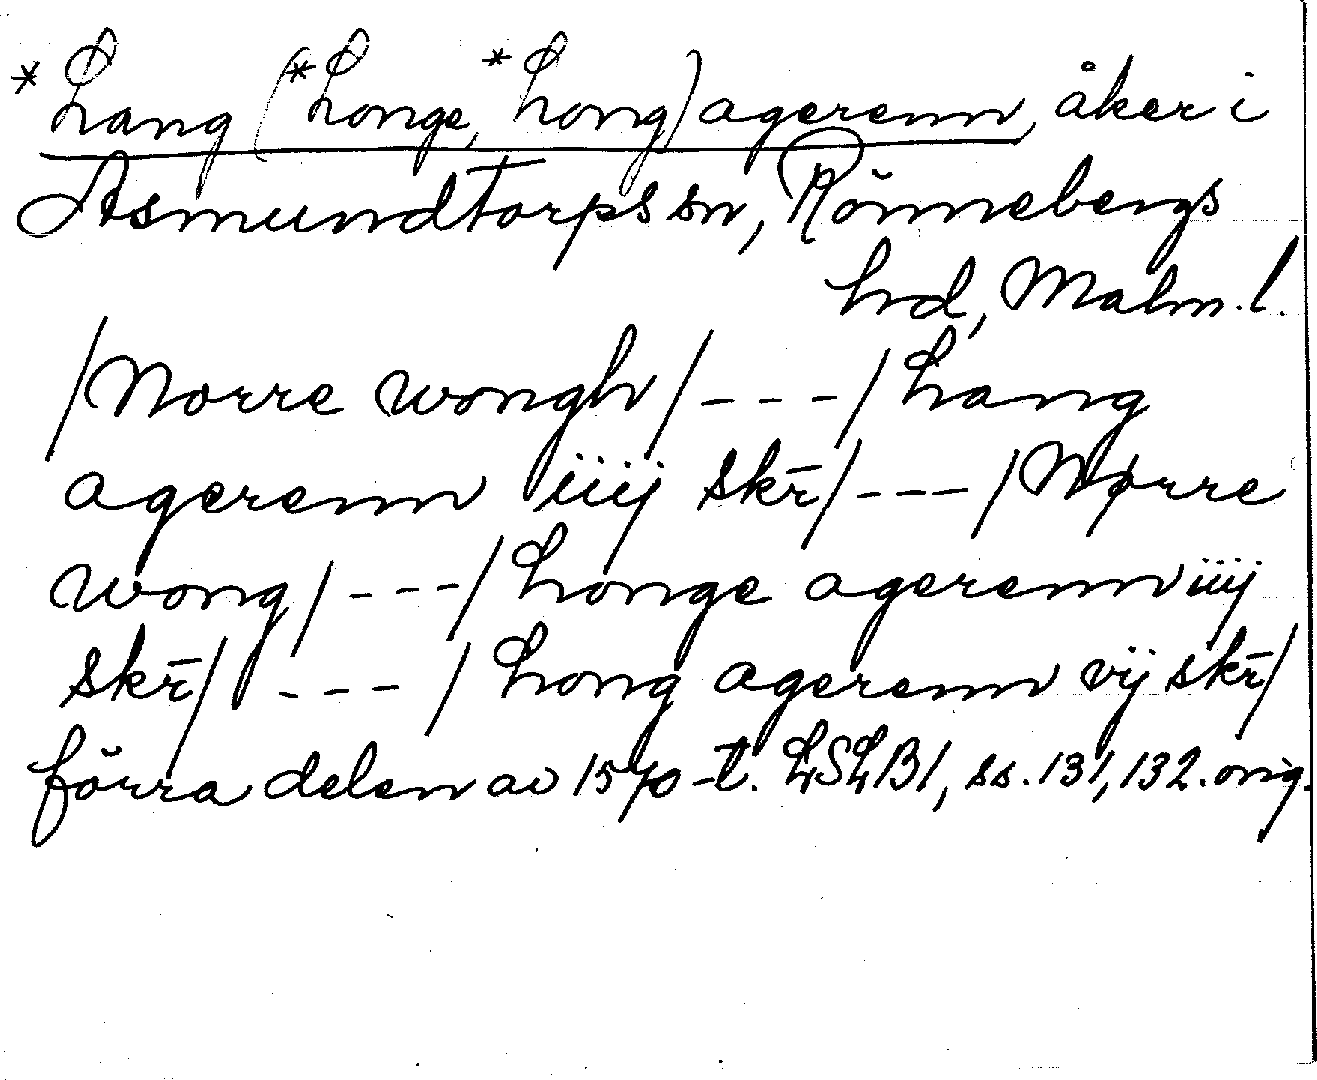 *Lang (*Longe, *Long) agerenn, åker i
Asmundtorps sn, Rönnebergs
hd, Malm. l.
/Norre wongh/ - - - / Lang
agerenn iiij skr̄/ - - - / Nørre
wong/ - - - / Longe agerenn iiij
skr̄/ - - - / Long agerenn vij skr̄/
förra delen av 1570-t. LSLB1, ss. 131, 132. orig.